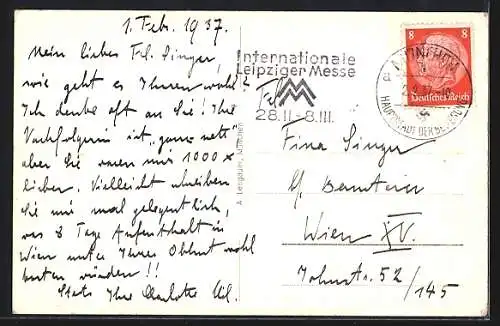 1. Feb. 1937.
Mein lieber Frl. Singer,
wie geht es Ihnen wohl?
Ich denke oft an Sie! Ihre
Nachfolgerin ist „ganz nett"
aber Sie waren mir 1000 x
lieber. Vielleicht schreiben
Sie mir mal gelegentlich,
was 8 Tage Aufenthalt in
Wien unter Ihrer Obhut wohl
kosten würden!!
Stets Ihre Charlotte
Internationale
Leipziger Messe
MM
28.II.-8.III.
8 8
Deutsches Reich
MÜNCHEN
HAUPTSTADT DER BEWEGUNG
Frl.
Fina Singer
b/
Wien XV.
Johnstr. 52/145
A. Lengauer, München